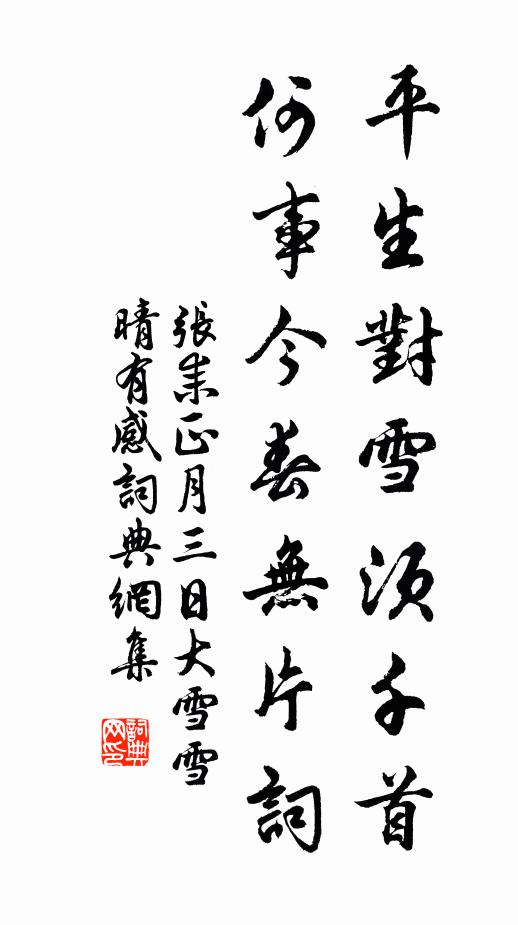 平生對雪須千首
何事今春無片詞
張耒正月三日大雪雪
晴有感詞典網集
詞典網印